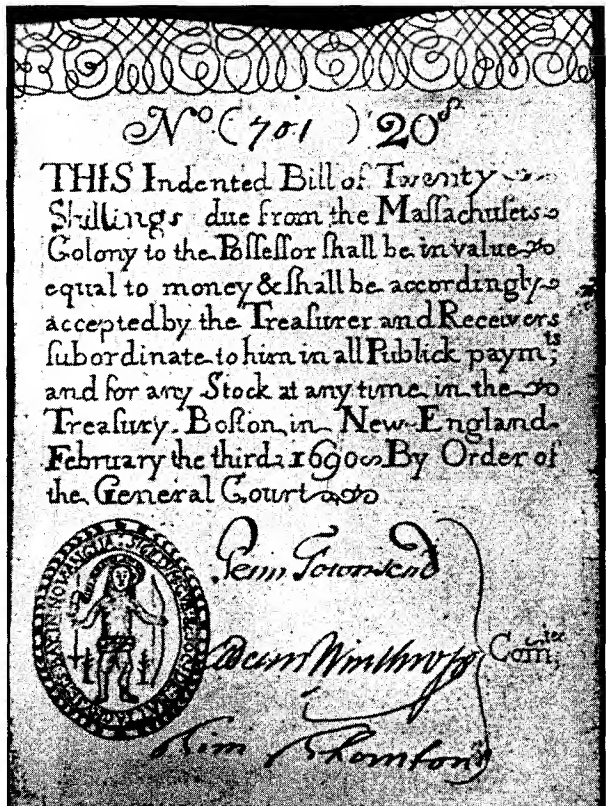 No (701) 20s
THIS Indented Bill of Twenty
Shillings due from the Maſſachuſets
Colony to the Poſſeſſor ſhall be in value
equal to money & ſhall be accordingly
accepted by the Treaſurer and Receivers
ſubordinate to him in all Publick paymts;
and for any Stock at any time in the
Treaſury. Boſton in New-England
February the third 1690 By Order of
the General Court
Penn Townsend
Adam Winthrop
Comtee
Tim Thornton